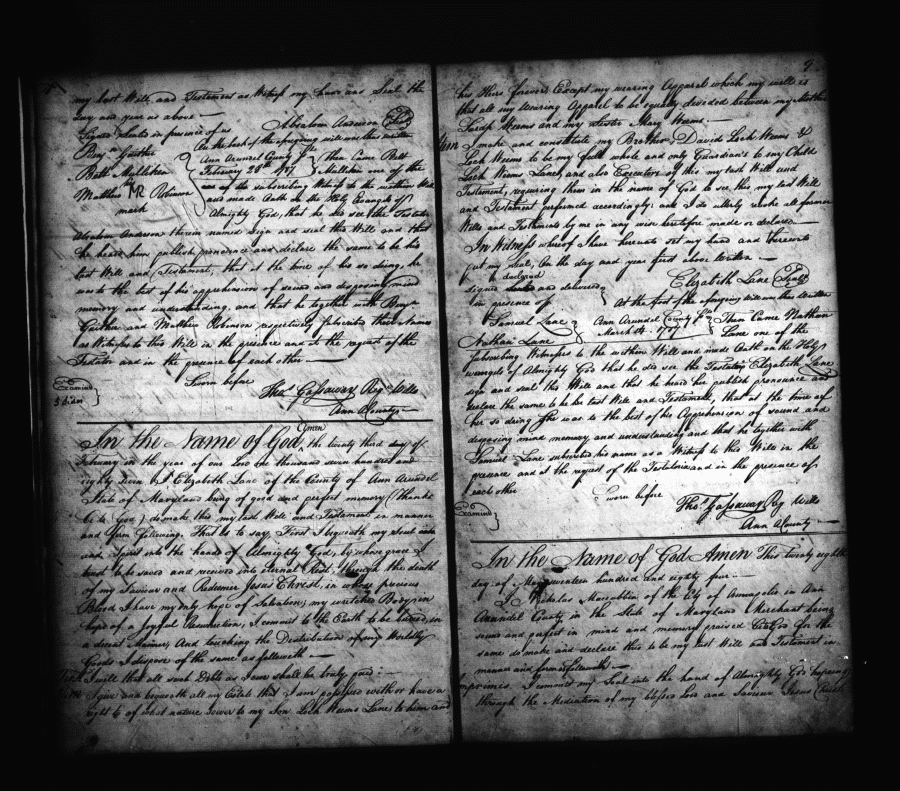 my last Will and Testament as Witness my hand and Seal the
day and year as above
Signed Seal'd in presence of us Abraham Anderson Seal
Benj.n Gaither On the back of the aforegoing will was thus written
Ann Arundel County
February 20th 1787 Then Came
one of the
Matthew MR Robinson
mark
of the subscribing Witness to the within Will
and made Oath on the Holy Evangels of
Almighty God, that he did see the Testator
Abraham Anderson therein named sign and seal this Will and that
he heard him publish pronounce and declare the same to be his
last Will and Testament, that at the time of his so doing, he
was to the best of his apprehension of sound and disposing mind
memory and understanding, and that he together with Benj.n
Gaither and Matthew Robinson respectively subscribed their Names
as Witnesses to this Will in the presence and at the request of the
Testator and in the presence of each other
Sworn before
Thos Gassaway Reg Wills
Ann A County
Examined
In the Name of God Amen the twenty third day of
February in the year of our lord one thousand seven hundred and
eighty seven I Elizabeth Lane of the County of Ann Arundel
State of Maryland being of good and perfect memory (thanks
be to God) do make this my last Will and Testament in manner
and form following. That is to say, First I bequeath my Soul
and Spirit into the hands of Almighty God, by whose grace I
trust to be saved and received into eternal Rest, through the death
of my Saviour and Redeemer Jesus Christ, in whose precious
Blood I have my only hope of Salvation; my wretched Body in
hope of a Joyful Resurrection, I commit to the Earth to be buried, in
a decent Manner, And touching the Distribution of my Worldly
Goods I dispose of the same as followeth
I will that all such Debts as I owe shall be truly paid
Item I give and bequeath all my Estate that I am possessed with or have a
right to of what nature soever to my Son Lock Weems Lane to him and
9
his Heirs forever Except my wearing Apparel which my will is
that all my Wearing Apparel to be equally divided between my Mother
Weems and my Sister Mary Weems
Item I make and constitute my Brothers David Lock Weems &
Lock Weems to be my full whole and only Guardian's to my Child
Lock Weems Lane, and also Executors of this my last Will and
Testament, requiring them in the name of God to see this my last Will
and Testament performed accordingly; and I do utterly revoke all former
Wills and Testaments by me in any wise heretofore made or declared
In Witness whereof I have hereunto set my hand and thereunto
put my seal, On the day and year first above written
declared
signed and delivered Elizabeth Lane Seal
in presence of At the foot of the aforegoing will was thus written
Samuel Lane Ann Arundel County
Nathan Lane March 1787 Then Came Nathan
Lane one of the
subscribing Witnesses to the within Will and made Oath on the Holy
evangels of Almighty God that he did see the Testatrix Elizabeth Lane
sign and seal this Will and that he heard her publish pronounce and
declare the same to be her last Will and Testament, that at the time of
her so doing She was to the best of his Apprehension of sound and
disposing mind memory and understanding and that he together with
Samuel Lane subscribed his name as a Witness to this Will in the
presence and at the request of the Testatrix and in the presence of
each other
Sworn before
Thos Gassaway Reg Wills
Ann A County
Examined
In the Name of God Amen This twenty eighth
day of May seventeen hundred and eighty four
I Nicholas Maccubbin of the City of Annapolis in Ann
Arundel County in the State of Maryland Merchant being
sound and perfect in mind and memory praised be God for the
same do make and declare this to be my last Will and Testament in
manner and form followeth
Imprimis. I commit my Soul into the hand of Almighty God hoping
through the Mediation of my blessed Lord and Saviour Jesus Christ